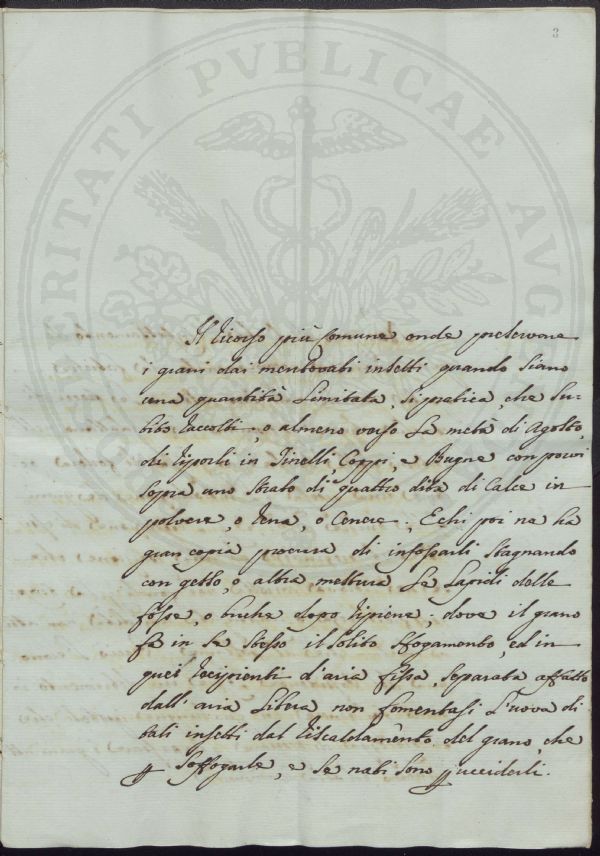 3
VERITATI PVBLICAE AVG
Il ricorso più comune onde preservare
i grani dai mentovati insetti quando siano
una quantità limitata, si pratica, che su-
bito raccolti, o almeno verso la metà di Agosto,
di riporli in Tinelli, Coppi, e Bugne con porvi
sopra uno strato di quattro dita di Calce in
polvere, o rena, o Cenere; E chi poi ne ha
gran copia procura di infossarli stagnando
con gesso, o altra mestura le lapidi delle
fosse, o buche dopo ripiene; dove il grano
fa in se stesso il solito sfogamento, ed in
quei recipienti d'aria fissa, separata affatto
dall'aria libera non fomentasi l'uova di
tali insetti dal riscaldamento del grano, che
p soffogarle, e se nati sono p ucciderli.